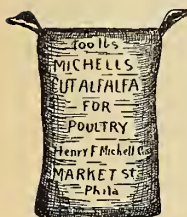 100 lbs
MICHELLS
CUT ALFALFA
FOR
POULTRY
Henry F Michell Co.
MARKET St
Phila